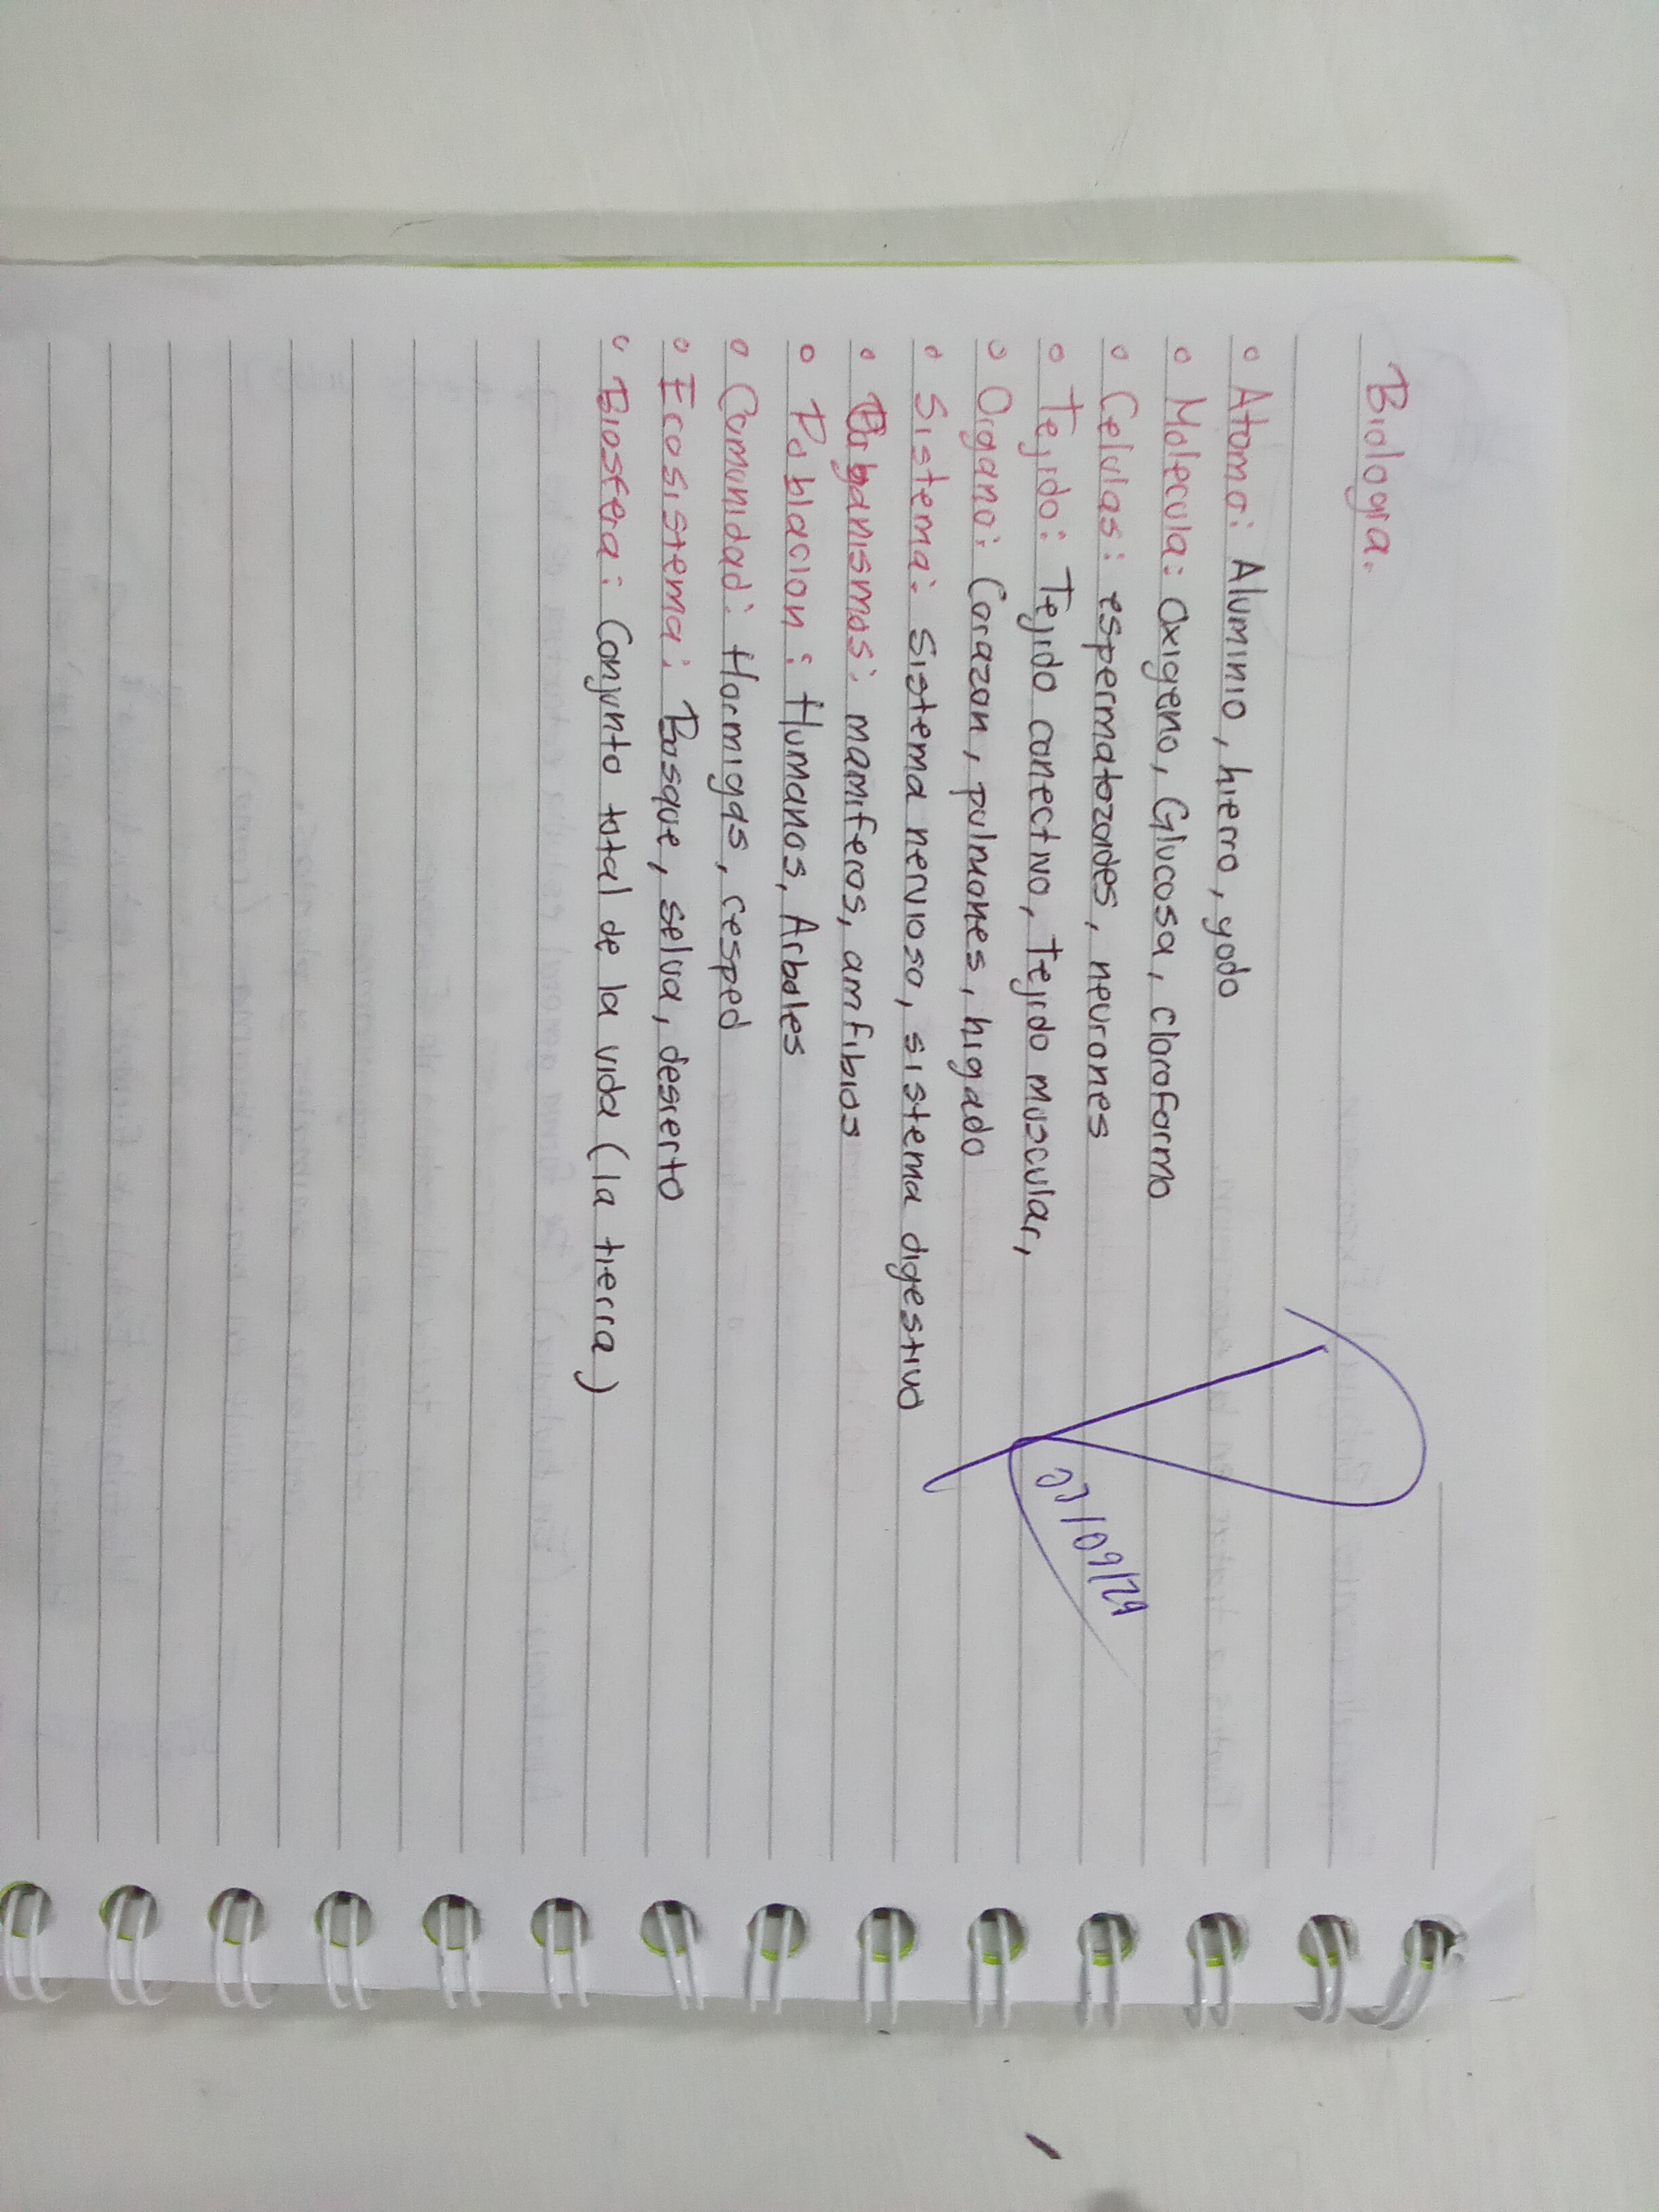 Biologia.
• Atomo: Aluminio, hierro, yodo
• Molecula: Oxigeno, Glucosa, cloroformo
• Celulas: espermatozoides, neurones
• Tejido: Tejido conectivo, Tejido muscular,
• Organo: Corazon, pulmones, higado
• Sistema: Sistema nervioso, sistema digestivo
• Organismos: mamiferos, amfibios
• Poblacion: Humanos, Arboles
• Comunidad: Hormigas, cesped
• Ecosistema: Bosque, selva, desierto
• Biosfera: Conjunto total de la vida (la tierra)
03/09/24